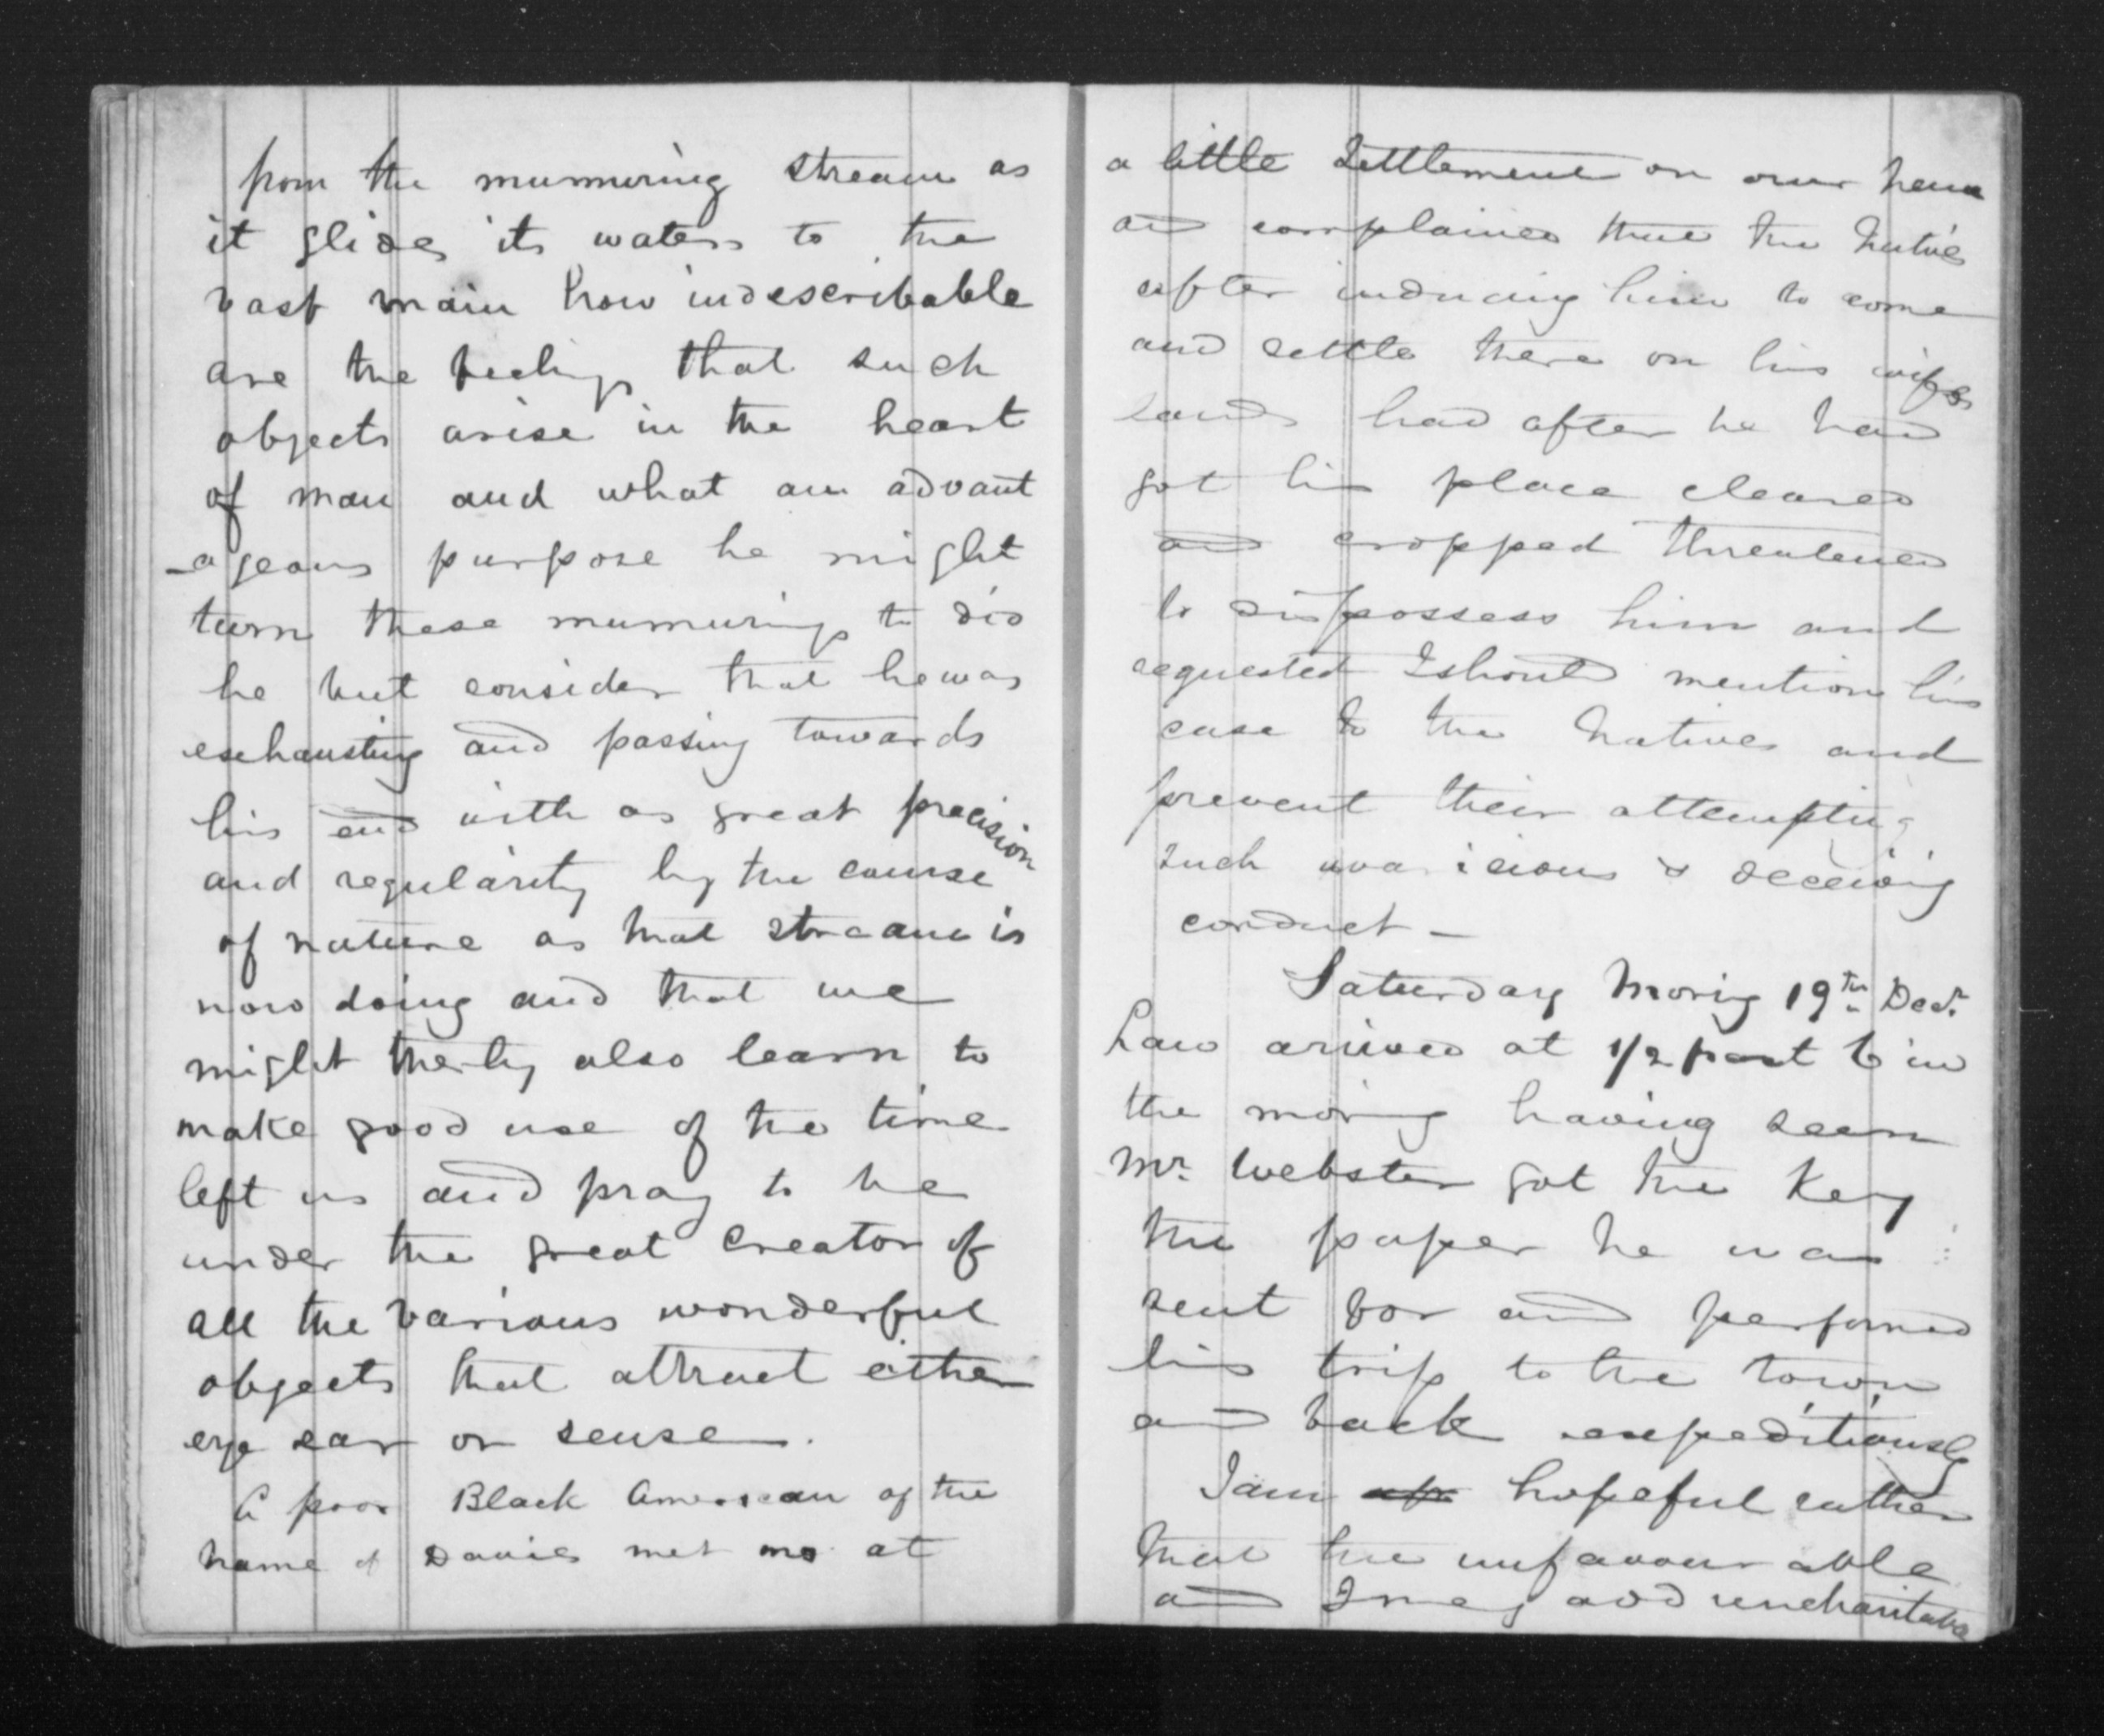 from the murmuring stream as
it glides its waters to the
vast main how indescribable
are the feelings that such
objects arise in the heart
of man and what an advant
-ageous purpose he might
turn these murmurings to did
he but consider that he was
exhausting and passing towards
his end with as great precision
and regularity by the course
of nature as that stream is
now doing and that we
might therby also learn to
make good use of the time
left us and pray to he
under the great Creator of
all the various wonderful
objects that attract either
eye ear or sense.
A poor Black American of the
name of Davies met me at
a little Settlement on our
and complained that the Natives
after inducing him to come
and settle there on his wifes
lands had after he had
got his place cleared
and cropped threatened
to dispossess him and
requested I should mention his
case to the Natives and
prevent their attempting
such avaricious & deceiving
conduct —
Saturday Morig 19th Decr.
Law arrived at 1/2 past 6 in
the moring having seen
Mr. Webster got the Key
the paper he was
sent for and performed
his trip to the town
and back expeditiously
I am hopeful rather
that the unfavourable
and I may add uncharitable